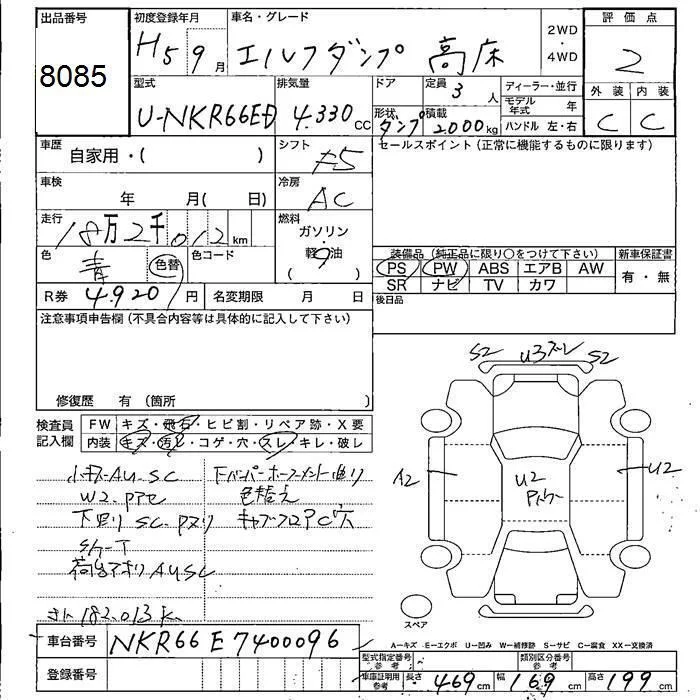 出品番号
8085
初度登録年月
H5 9月
車名・グレード
エルフダンプ 高床
2WD
・
4WD
評価点
2
型式
U-NKR66ED
排気量
4.330 CC
ドア
形状
ダンプ
定員
3人
積載
2000kg
ディーラー・並行
モデル年式 年
ハンドル 左・右
外装 内装
C C
車歴
自家用・( )
シフト
F5
セールスポイント(正常に機能するものに限ります)
車検
年 月( 日)
冷房
AC
走行
18万2千012km
燃料
ガソリン
軽油
( )
色
青
色替
色コード
装備品(純正品に限り○をつけて下さい)
新車保証書
PS PW ABS エアB AW
有・無
SR ナビ TV カワ
R券 4.920円
名変期限 月 日
後日品
注意事項申告欄(不具合内容等は具体的に記入して下さい)
修復歴 有(箇所 )
S2 U3ズレ S2
検査員
記入欄
FW キズ・飛石・ヒビ割・リペア跡・X要
内装 キズ・汚レ・コゲ・穴・スレ・キレ・破レ
A2
U2
U2
小キズ・AU.SC
W2.PPC
色替え
下回り SC.
AUSC
182.013K
スペア
車台番号
NKR66E7400096
登録番号
A―キズ E―エクボ U―凹み W―補修跡 S―サビ C―腐食 XX―交換済
型式指定番号
参考
類別区分番号
参考
車庫証明用
参考
長さ 469cm 幅 169cm 高さ 199cm